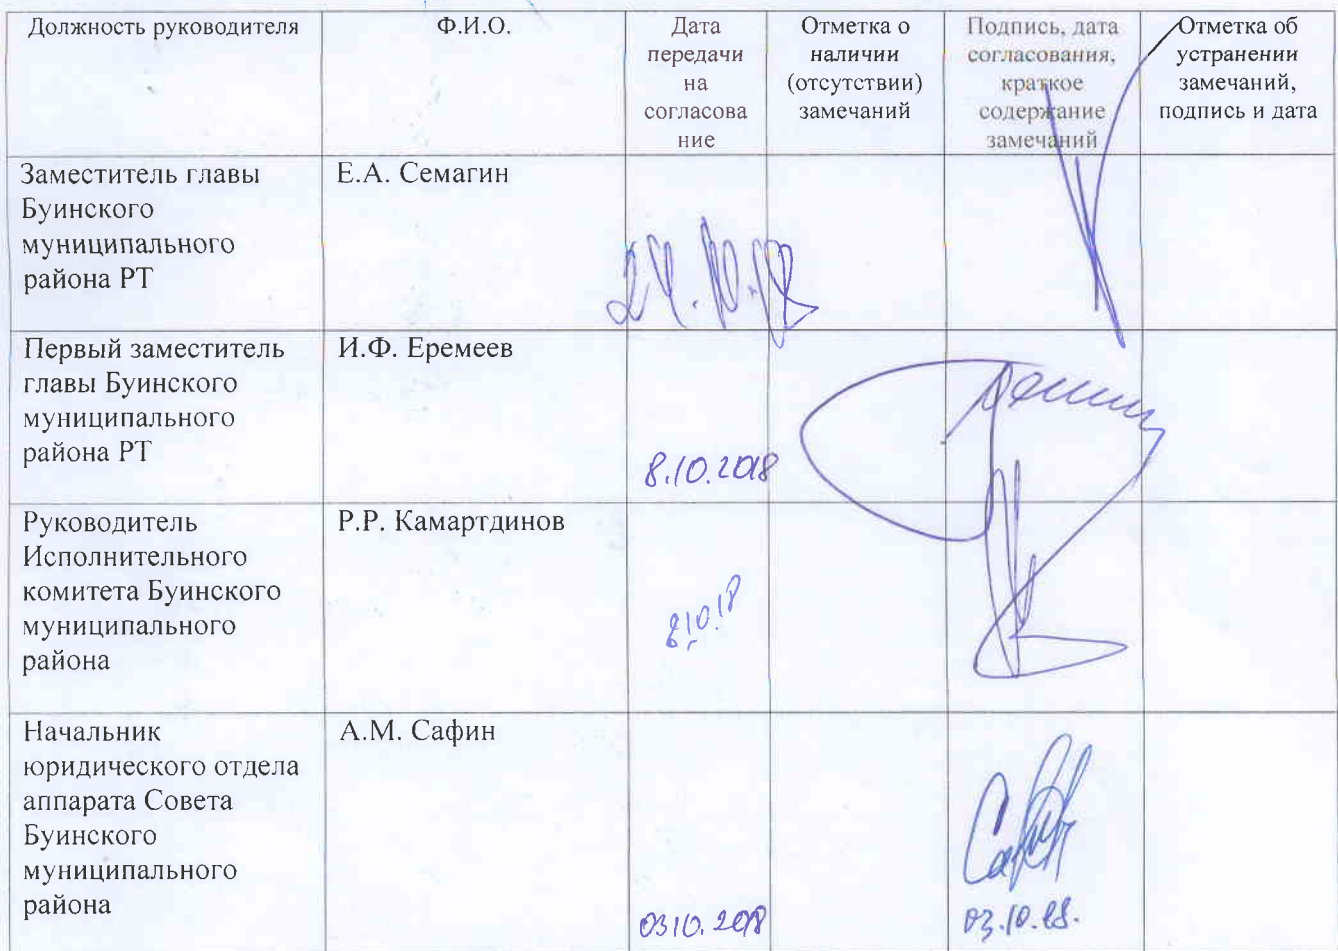 Должность руководителя
Ф.И.О.
Дата
передачи
на
согласова
ние
Отметка о
наличии
(отсутствии)
замечаний
Подпись, дата
согласования,
краткое
содержание
замечаний
Отметка об
устранении
замечаний,
подпись и дата
Заместитель главы
Буинского
муниципального
района РТ
Е.А. Семагин
Первый заместитель
главы Буинского
муниципального
района РТ
И.Ф. Еремеев
8.10.2018
Руководитель
Исполнительного
комитета Буинского
муниципального
района
Р.Р. Камартдинов
8.10.18
Начальник
юридического отдела
аппарата Совета
Буинского
муниципального
района
А.М. Сафин
03.10.2018
03.10.18.